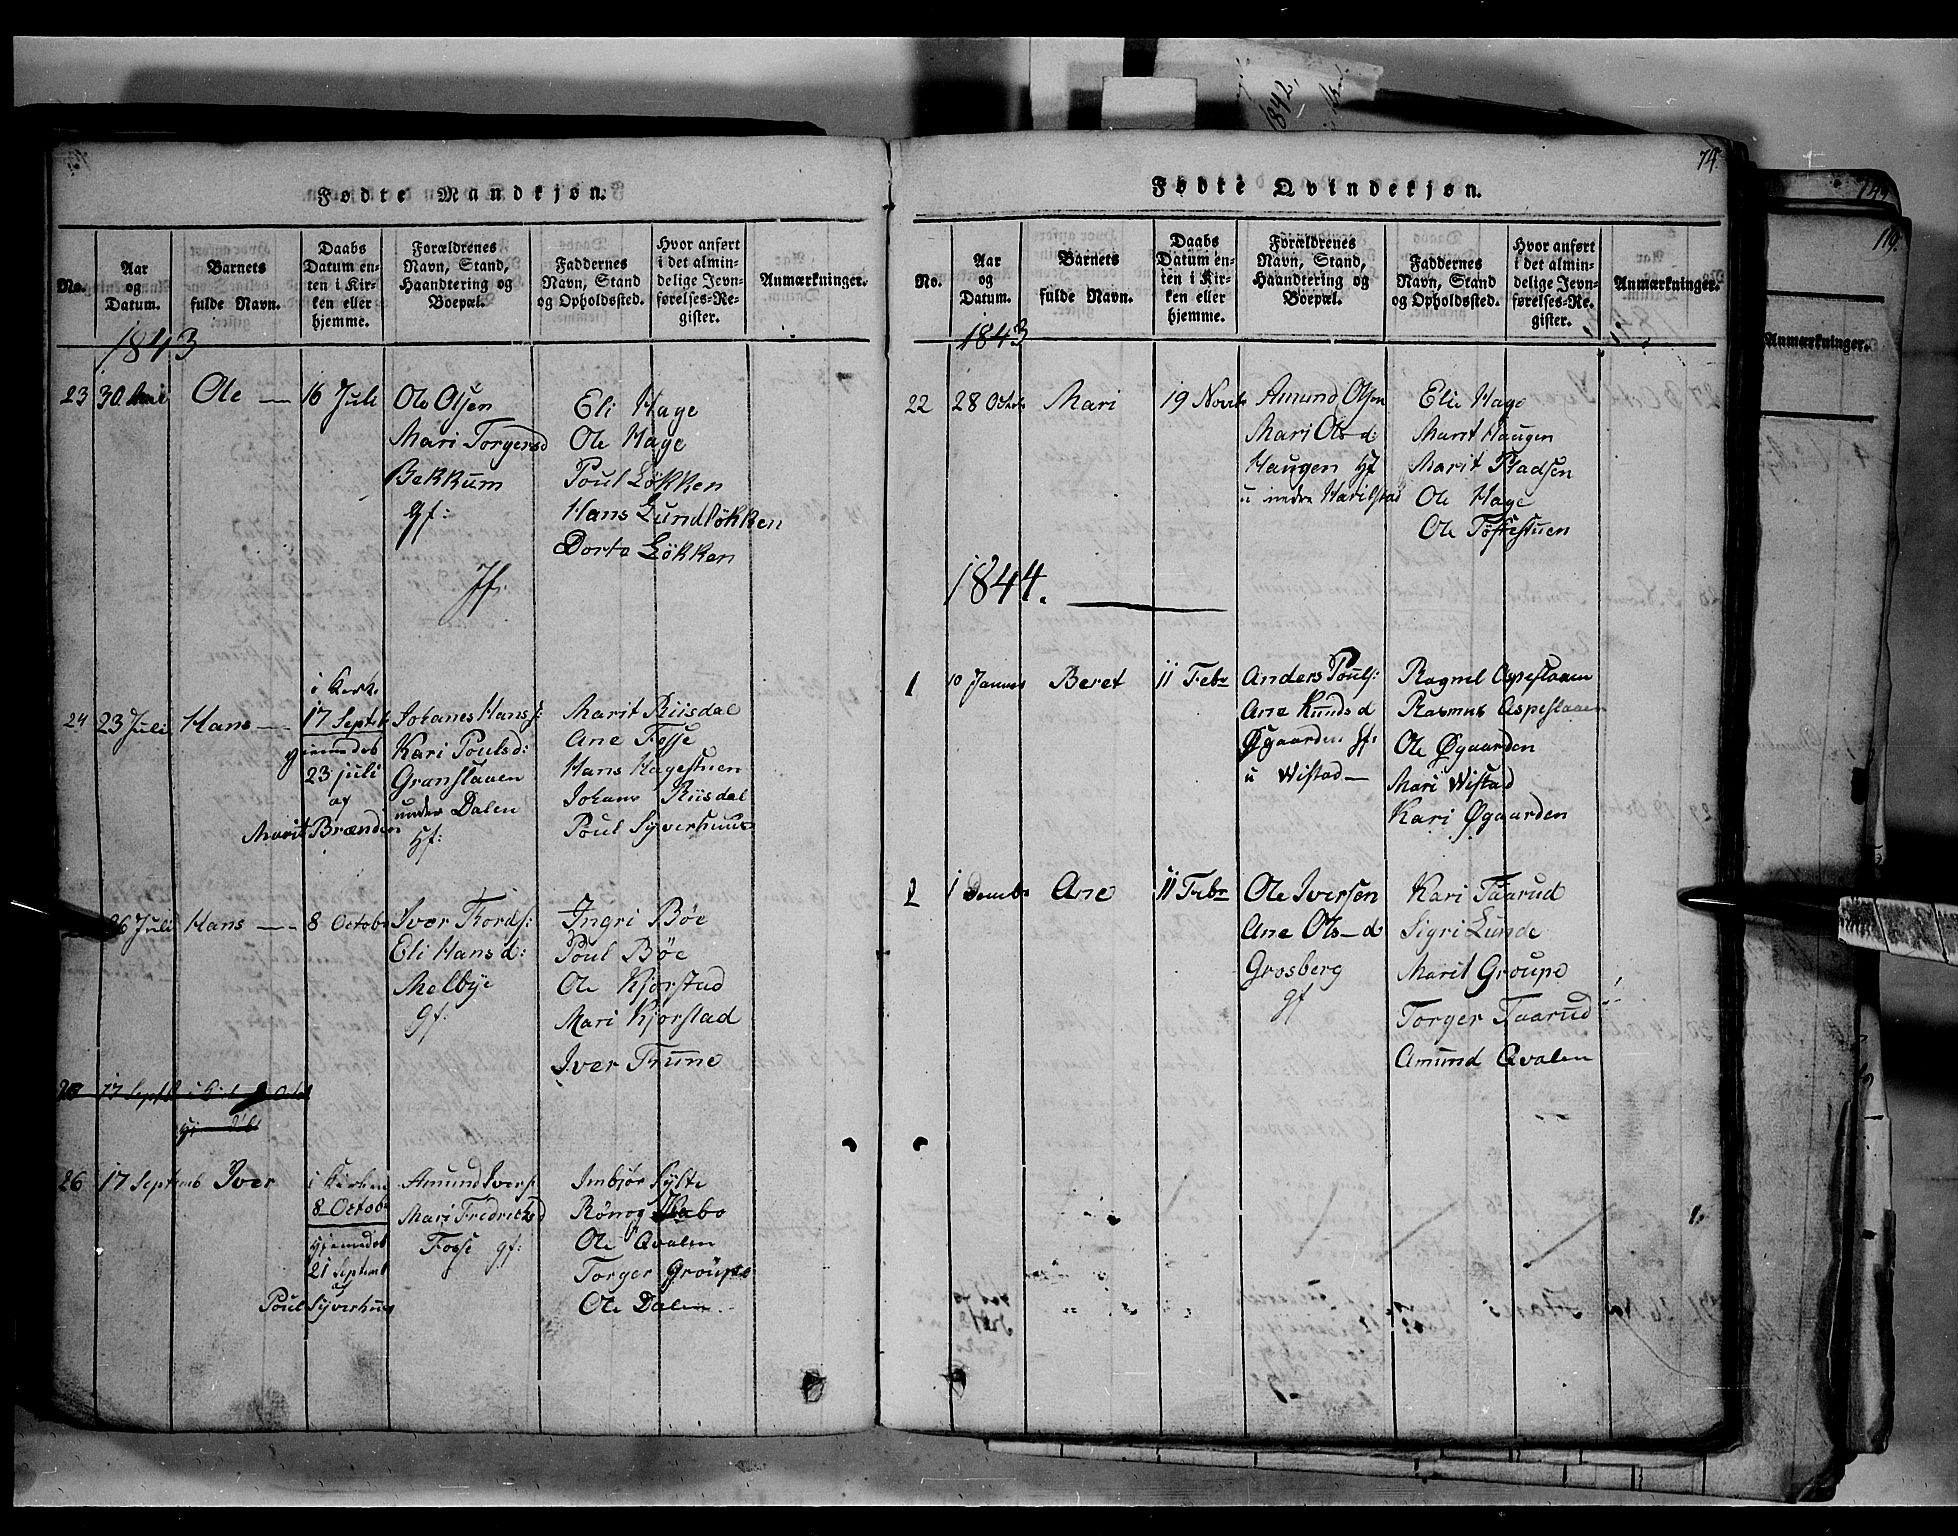 Fødte Mandkjøn.
No.
Aar og Datum.
Barnets fulde Navn.
Daabs Datum enten i Kirken eller hjemme.
Forældrenes Navn, Stand, Haandtering og Boepæl.
Faddernes Navn, Stand og Opholdssted.
Hvor anført i det almindelige Jevnførelses-Register.
Anmærkninger.
1843
23 30 Ole — 16 Juli
Ole Olsen
Mari Torgersd
Bekkum
gf:
Eli Hage
Ole Hage
Poul Løkken
Hans Lundløkken
Dorte Løkken
24 23 Juli Hans —
i Kirk.
17 Septeb
hjemmedøb
23 juli
af
Marit Brænden
Johanes Hans:
Kari Poulsd:
Grønslaaen
under Dalen
Hf:
Marit Riisdal
Ane Fosse
Hans Hagestuen
Johans Riisdal
Poul Syverhuus
26 Juli Hans — 8 Octobr
Iver Thords:
Eli Hansd:
Melbye
gf:
Ingri Bøe
Poul Bøe
Ole Kjorstad
Mari Kjorstad
Iver Frune
17 Septb
26 17 Septemb Iver
i Kirken
8 Octobr
Hjemedøb
21 Septemb
af
Poul Syverhuus
Amund Ivers:
Mari Fredriksd
Fosse gf:
Imbjør Sylte
Rønog
Ole Qvalen
Torger Groupe
Ole Dalen
74
Fødte Qvindekjøn.
No.
Aar og Datum.
Barnets fulde Navn.
Daabs Datum enten i Kirken eller hjemme.
Forældrenes Navn, Stand, Haandtering og Boepæl.
Faddernes Navn, Stand og Opholdssted.
Hvor anført i det almindelige Jevnførelses-Register.
Anmærkninger.
1843
22 28 Octob Mari 19 Novb
Amund Olsen
Mari Ols-d:
Haugen Hf
u indre Harilstad
Eli Hage
Marit Haugen
Marit Pladsen
Ole Hage
Ole Tøftestuen
1844.
1 10 Januar Beret 11 Febr
Anders Pouls:
Ane Knudsd
Øgaarden Hf:
u Wistad
Ragnel Aspeslaaen
Rasmus Aspeslaaen
Ole Øgaarden
Mari Wistad
Kari Øgaarden
2 1 Dembr Ane 11 Febr
Ole Iversen
Ane Ols-d
Grosberg
gf
Kari Taarud
Sigri Lunde
Marit Groupe
Torger Taarud
Amund Qvalen
119.
Anmærkninger.
1842,